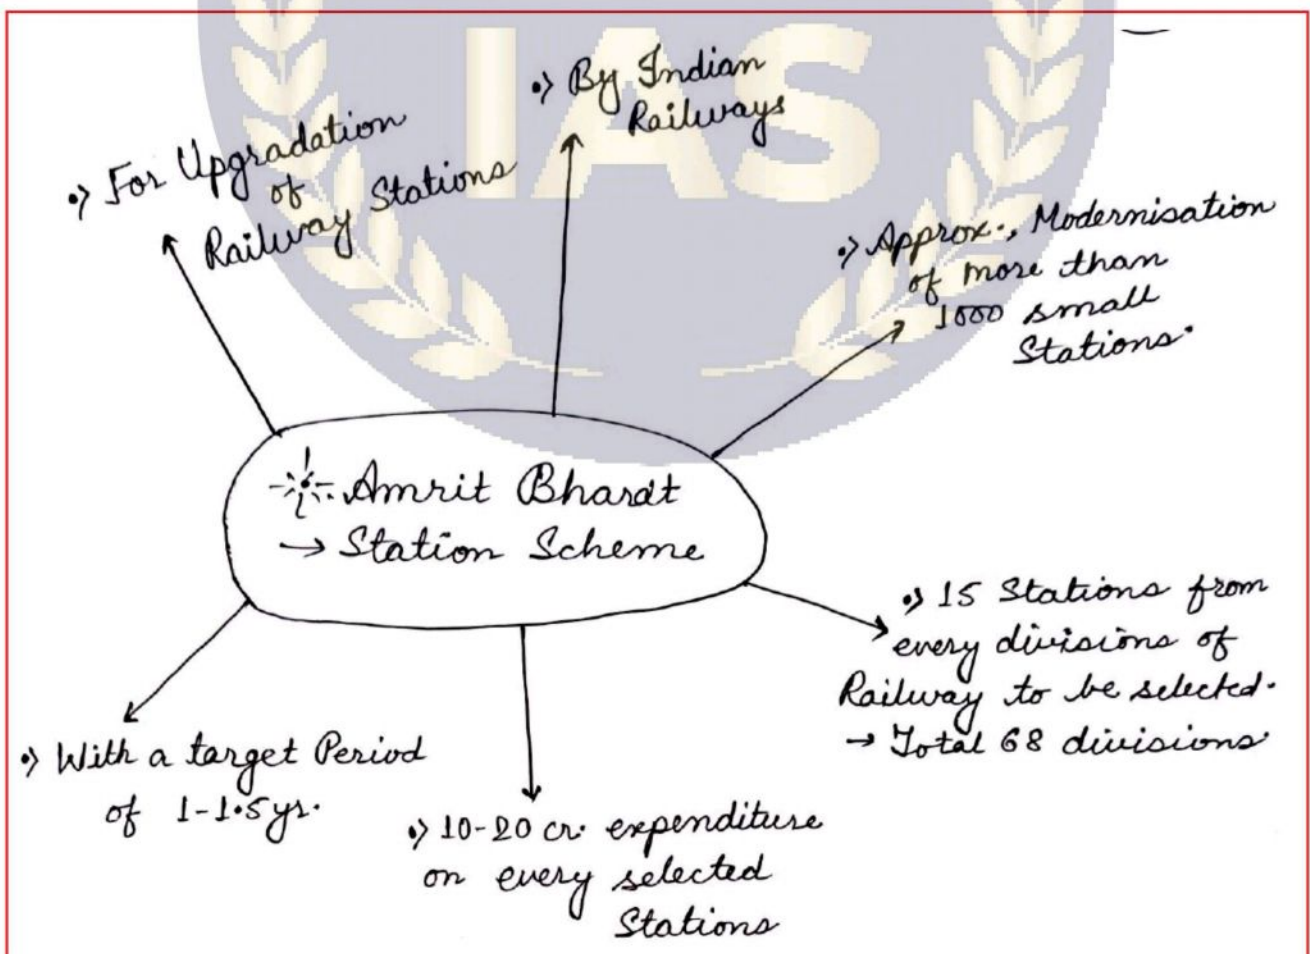 IAS
•) By Indian
Railways
•) For Upgradation
of
Railway Stations
•) Approx., Modernisation
of more than
1000 small
Stations.
Amrit Bharat
→ Station Scheme
•) 15 Stations from
every divisions of
Railway to be selected.
→ Total 68 divisions.
•) With a target Period
of 1-1.5 yr.
•) 10-20 cr. expenditure
on every selected
Stations